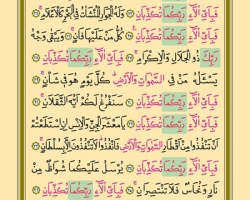 فَبِأَىِّ اٰلَٓاءِ رَبِّكُمَا تُكَذِّبَانِ ﴿٢٣﴾ وَلَهُ الْجَوَارِ الْمُنْشَاٰتُ فِى الْبَحْرِ كَالْاَعْلَامِ ﴿٢٤﴾
فَبِأَىِّ اٰلَٓاءِ رَبِّكُمَا تُكَذِّبَانِ ﴿٢٥﴾ كُلُّ مَنْ عَلَيْهَا فَانٍ ﴿٢٦﴾ وَيَبْقٰى وَجْهُ
رَبِّكَ ذُو الْجَلَالِ وَالْاِكْرَامِ ﴿٢٧﴾ فَبِأَىِّ اٰلَٓاءِ رَبِّكُمَا تُكَذِّبَانِ ﴿٢٨﴾
يَسْـَٔلُهُ مَنْ فِى السَّمٰوَاتِ وَالْاَرْضِ كُلَّ يَوْمٍ هُوَ فِى شَأْنٍ ﴿٢٩﴾
فَبِأَىِّ اٰلَٓاءِ رَبِّكُمَا تُكَذِّبَانِ ﴿٣٠﴾ سَنَفْرُغُ لَكُمْ اَيُّهَ الثَّقَلَانِ ﴿٣١﴾
فَبِأَىِّ اٰلَٓاءِ رَبِّكُمَا تُكَذِّبَانِ ﴿٣٢﴾ يَا مَعْشَرَ الْجِنِّ وَالْاِنْسِ اِنِ اسْتَطَعْتُمْ
اَنْ تَنْفُذُوا مِنْ اَقْطَارِ السَّمٰوَاتِ وَالْاَرْضِ فَانْفُذُوا لَا تَنْفُذُونَ اِلَّا بِسُلْطَانٍ ﴿٣٣﴾
فَبِأَىِّ اٰلَٓاءِ رَبِّكُمَا تُكَذِّبَانِ ﴿٣٤﴾ يُرْسَلُ عَلَيْكُمَا شُوَاظٌ مِنْ
نَارٍ وَنُحَاسٌ فَلَا تَنْتَصِرَانِ ﴿٣٥﴾ فَبِأَىِّ اٰلَٓاءِ رَبِّكُمَا تُكَذِّبَانِ ﴿٣٦﴾